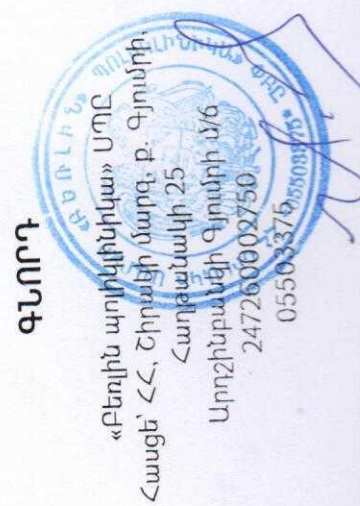 ԳՆՈՐԴ
«Բեռլին պոլիկլինիկա» ՍՊԸ
Հասցե՝ ՀՀ, Շիրակի մարզ, ք. Գյումրի,
Հաղթանակի 25
Արդշինբանկի Գյումրի մ/ճ
247260002750
05503375